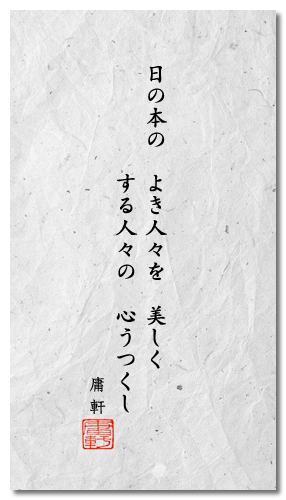 日の本の　よき人々を　美しく
する人々の　心うつくし
庸軒
庸軒